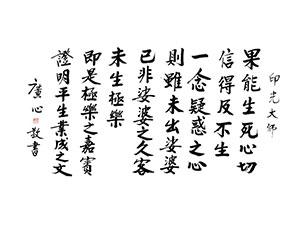 印光大師
果能生死心切
信得及不生
一念疑惑之心
則雖未出娑婆
已非娑婆之久客
未生極樂
即是極樂之嘉賓
證明平生業成之文
廣心敬書